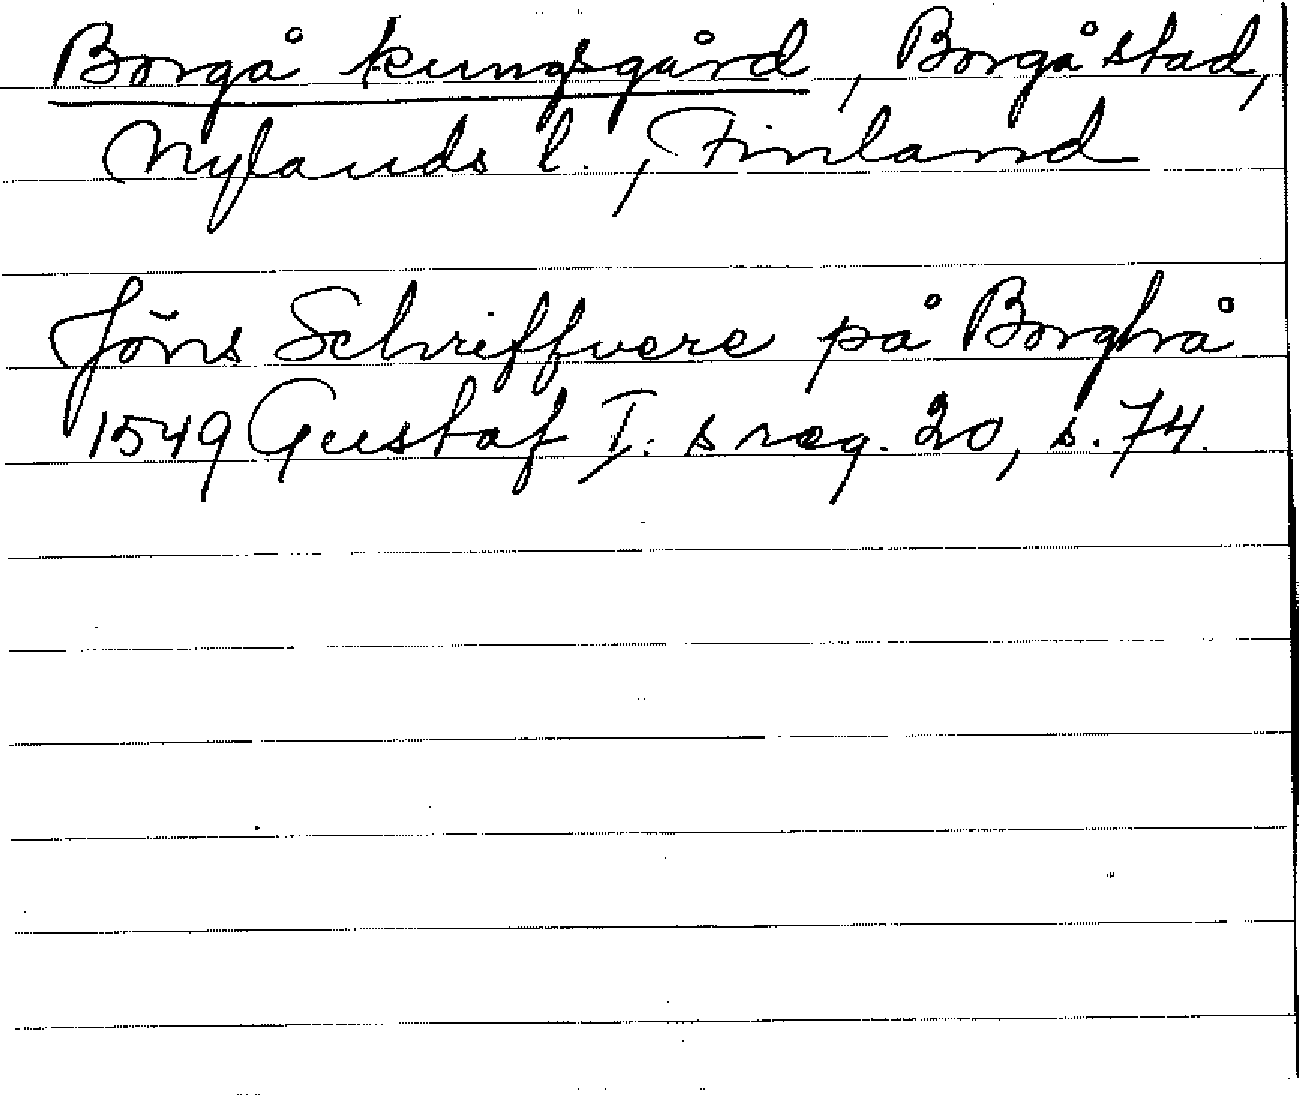 Borgå kungsgård, Borgå stad,
Nylands l., Finland
Jöns Schriffvere på Borghå
1549 Gustaf I:s reg. 20, s. 74.